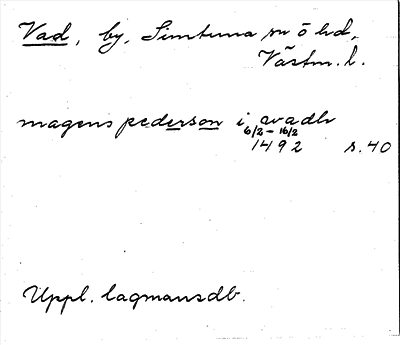 Vad, by, Simtuna sn ö hd,
Västm. l.
magens pederson i wadh
6/2 - 16/2
1492 s. 40
Uppl. lagmansdb.